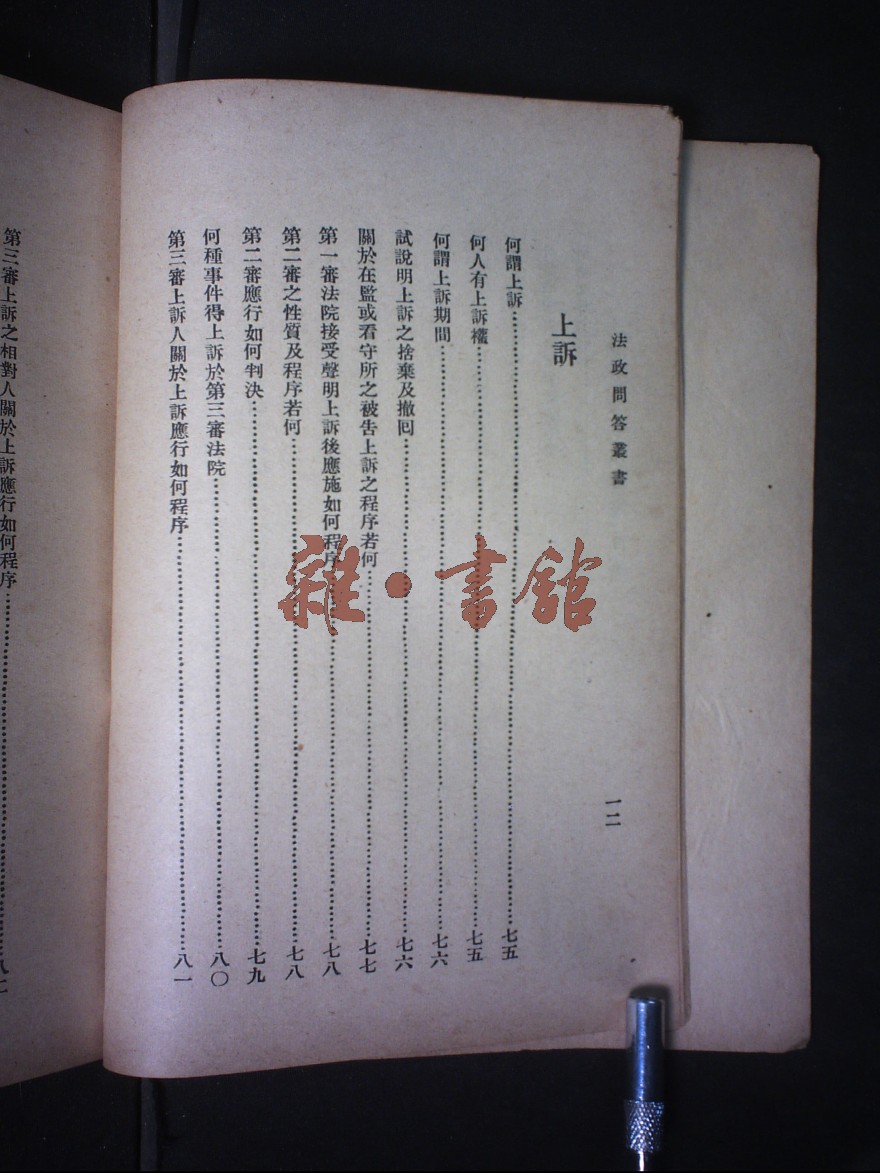 法政問答叢書
一二
上訴
何謂上訴……七五
何人有上訴權……七五
何謂上訴期間……七六
試說明上訴之捨棄及撤回……七六
關於在監或看守所之被告上訴之程序若何……七七
第一審法院接受聲明上訴後應施如何程序……七八
第二審之性質及程序若何……七八
第二審應行如何判決……七九
何種事件得上訴於第三審法院……八〇
第三審上訴人關於上訴應行如何程序……八一
第三審上訴之相對人關於上訴應行如何程序……八二
雜·書館